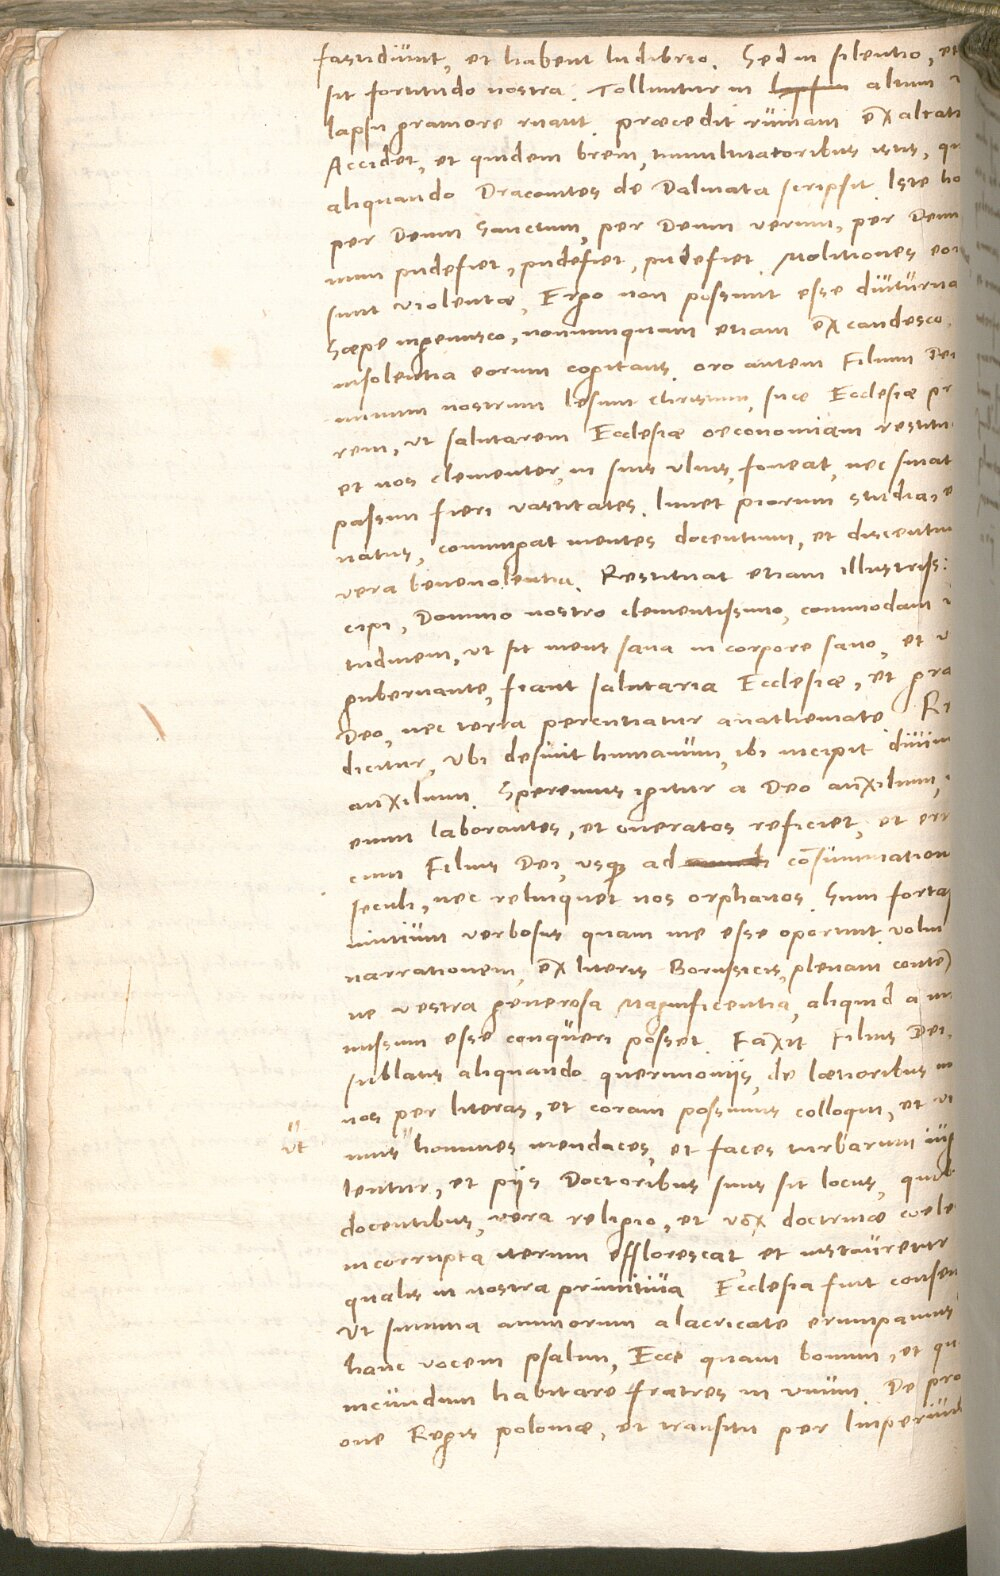 fastidiunt, et habent ludibrio. Sed in silentio, et
sit fortitudo nostra. Tolluntur in lapsum altum
lapsu graviore ruant. præcedit ruinam exaltati
Accidet, et quidem brevi, tumultuatoribus istis, qu
aliquando Draconites de Dalmata scripsit. Iste ho
per Deum Sanctum, per Deum verum, per Deum
num pudefiet, pudefiet, pudefiet. Molitiones eor
sunt violentæ, Ergo non possunt esse diuturna
Sæpe ingemisco, nonnunquam etiam excandesco,
insolentia eorum cogitans. oro autem Filium Dei
minum nostrum Iesum Christum, suæ Ecclesiæ pr
rem, ut salutarem Ecclesiæ oeconomiam restitu
et nos clementer, in suis ulnis, foveat, nec sinat
passim fieri vastitates. Iuvet piorum studia, e
natus, coniungat mentes docentium, et discentiu
vera benevolentia. Restituat etiam illustriss:
cipi, Domino nostro clementissimo, commodam v
tudinem, ut sit mens sana in corpore sano, et v
gubernante, fiant salutaria Ecclesiæ, et gra
Deo, nec terra percutiatur anathemate. Re
dicitur, Ubi desinit humanum, ibi incipit divin
auxilium. Speremus igitur a Deo auxilium,
enim laborantes, et oneratos reficiet, et er
cum Filius Dei, usq ad consummation
seculi, nec relinquet nos orphanos. Sum forta
nimium verbosus quam me esse oportuit. volui
narrationem, ex literis Borussicis, plenam conte
ne vestra generosa Magnificentia, aliquid a m
missum esse conqueri posset. Faxit Filius Dei,
sublatis aliquando querimoniis, de lætioribus
nos per literas, et coram possimus colloqui, et
ut
mus homines mendaces, et faces turbarum iug
lentur, et piis Doctoribus suus sit locus, quib
docentibus, vera religio, et vox doctrinæ coele
incorrupta iterum efflorescat et instauretur
qualis in nostra primitiva Ecclesia fuit consen
Ut summa animorum alacricate erumpamus
hanc vocem psalmi, Ecce quam bonum, et qu
iucundum habitare fratres in unum. De pro
one Regis poloniæ, et transitu per Imperium